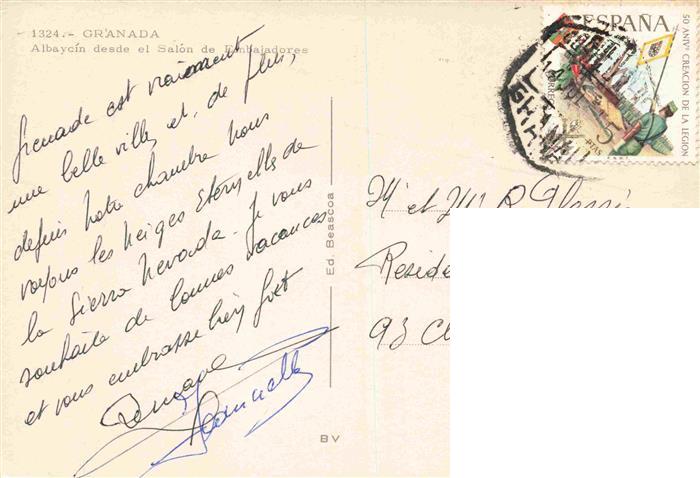 1324.- GRANADA
Albaycín desde el Salón de Embajadores
Grenade est vraiment
une belle ville, et, de plus,
depuis notre chambre nous
voyons les neiges éternelles de
la Sierra Nevada. Je vous
souhaite de bonnes vacances
et vous embrasse bien fort
Ed. Beascoa
BV
ESPAÑA
50 ANIVº CREACION DE LA LEGION
CORREOS
5 PTAS
M. et Me R.
Reside
93